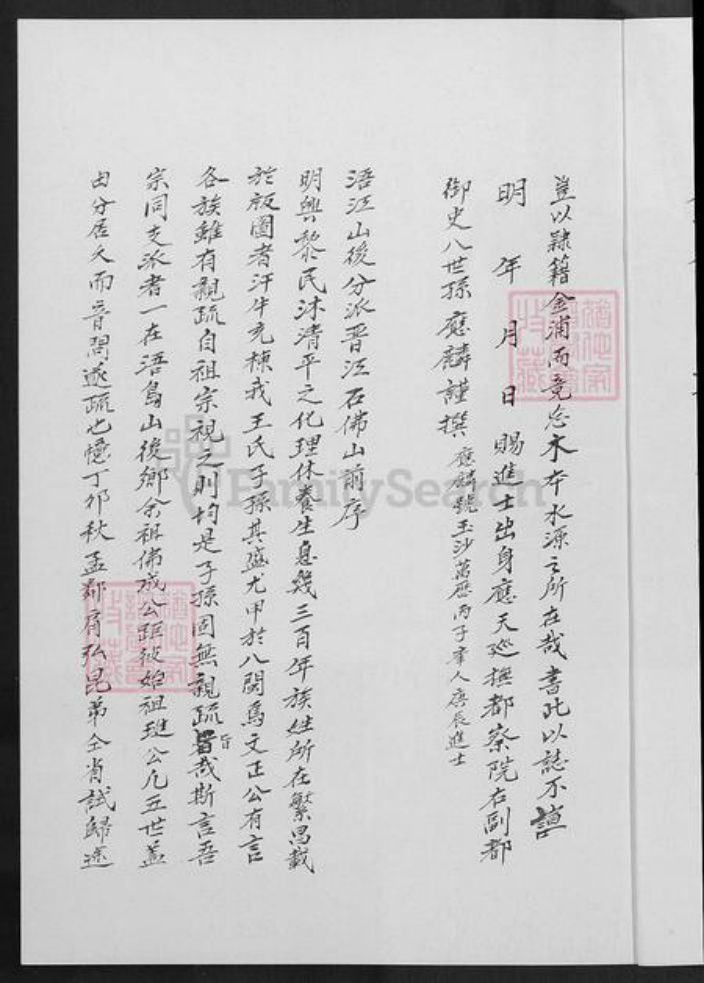 豈以隸籍金浦而竟忘木本水源之所在哉書此以誌不諼
明 年 月 日 賜進士出身應天巡撫都察院右副都
御史八世孫應麟謹撰 應麟號玉沙萬歷丙子舉人庚辰進士
浯江山後分派晋江石佛山前序
明興黎民沐清平之化理休養生息幾三百年族姓所在繁昌載
於版圖者汗牛充棟我王氏子孫其盛尤甲於八閩焉文正公有言
各族雖有親疏自祖宗視之則均是子孫固無親疏旨哉斯言吾
宗同支派者一在浯島山後鄉余祖佛成公距彼始祖璡公凡五世蓋
由分居久而音問遂疏也憶丁卯秋孟鄰膺弘昆弟仝肖試歸途
FamilySearch